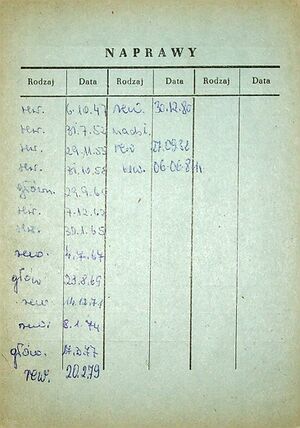 NAPRAWY
Rodzaj Data Rodzaj Data Rodzaj Data
rew. 6.10.47 rewi. 30.12.80
rew. 31.7.52
rew. 29.11.55 rew 27.09.82
rew. 31.10.58 rew. 06.06.84
główn. 29.9.61
rew. 7.12.63
rew. 30.1.65
rewo. 4.7.67
głów 23.8.69
rew. 14.12.71
rewi 8.1.74
głów. 17.3.77
rew. 20.2.79